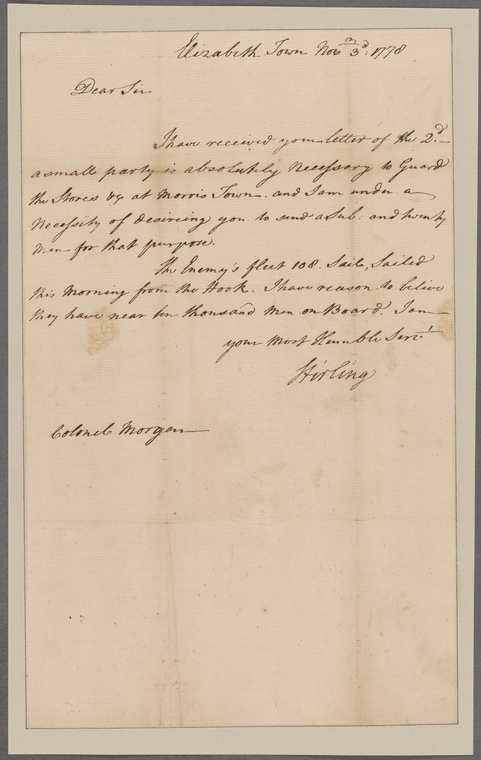 Elizabeth Town Nov.r 3d: 1778
Dear Sir
I have received your letter of the 2d.
a small party is absolutily Necessary to Guard
the Stores &c at Morris Town. and I am under a
Necessity of desireing you to send a Sub: and twenty
Men for that purpose.
The Enemy's fleet 108. Sails, Sailed
this Morning from the Hook. I have reason to belive
they have near ten thousand Men on Board. I am
your Most Humble Servt.
Stirling
Colonel Morgan